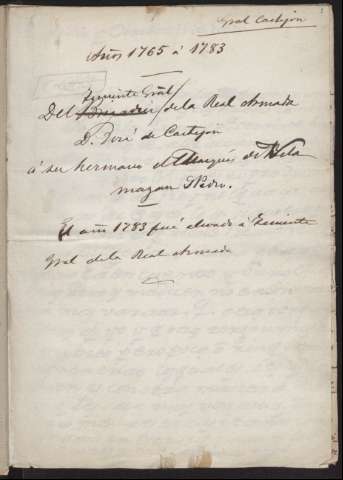 Gral Castejon
Años 1765 á 1783
Teniente Gral
Del Brigadier de la Real Armada
D. José de Castejon
á su hermano el Marqués de Vela
mazan D Pedro.
El año 1783 fué elevado á Teniente
Gral de la Real Armada